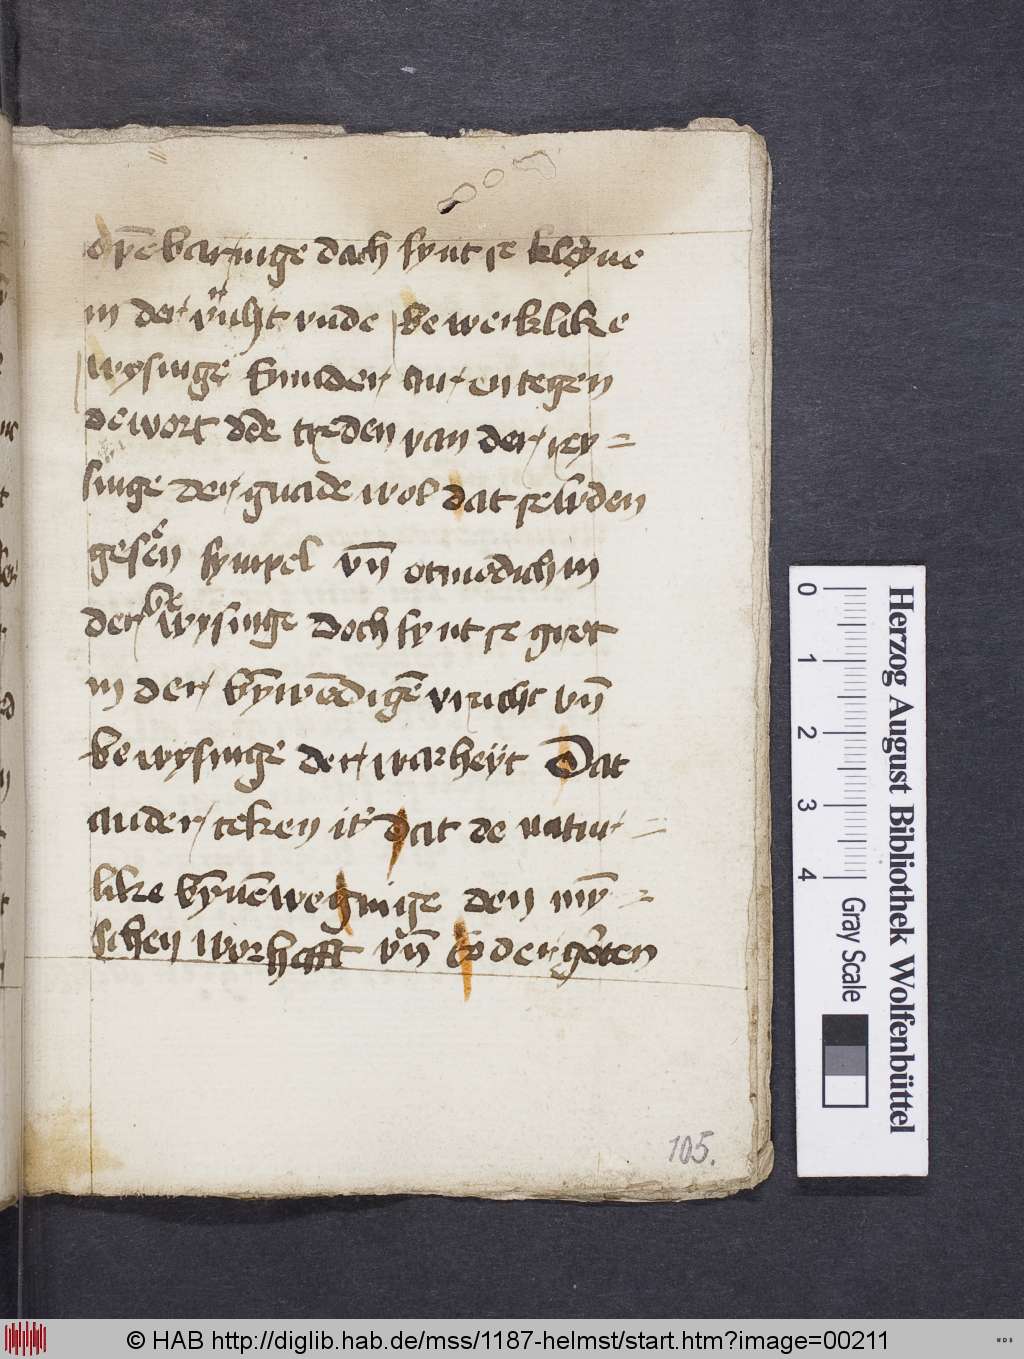 opēbaringe doch synt se kleyne
in der vrucht vnde bewerklike
wysinge hinder
de wort de treden van der rey=
singe der gnade wol dat se wden
geseen sympel vn̄ otmodich in
der bewysinge doch synt se grot
in der bȳwēdigē vrucht vn̄
bewysinge der warheyt Dat
ander teken is dat de natur=
like bȳnē den my̅=
schen worhafft vn̄ to der goten
105.
0 1 2 3 4
Herzog August Bibliothek Wolfenbüttel
Gray Scale
© HAB http://diglib.hab.de/mss/1187-helmst/start.htm?image=00211